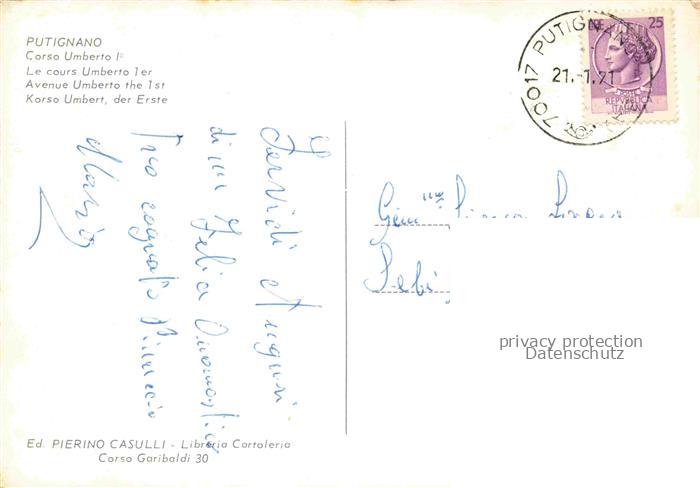 PUTIGNANO
Corso Umberto I°
Le cours Umberto 1er
Avenue Umberto the 1st
Korso Umbert, der Erste
70017 PUTIGNANO
21.-1.71
25
POSTE
REPVBBLICA
ITALIANA
Fervidi Auguri
di un Felice Onomastico
Tuo cognato
Gem
privacy protection
Datenschutz
Ed. PIERINO CASULLI - Libreria Cartoleria
Corso Garibaldi 30